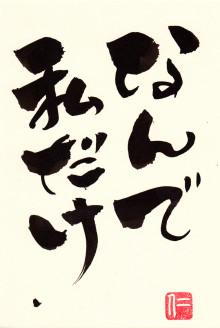 なんで
私だけ
仁